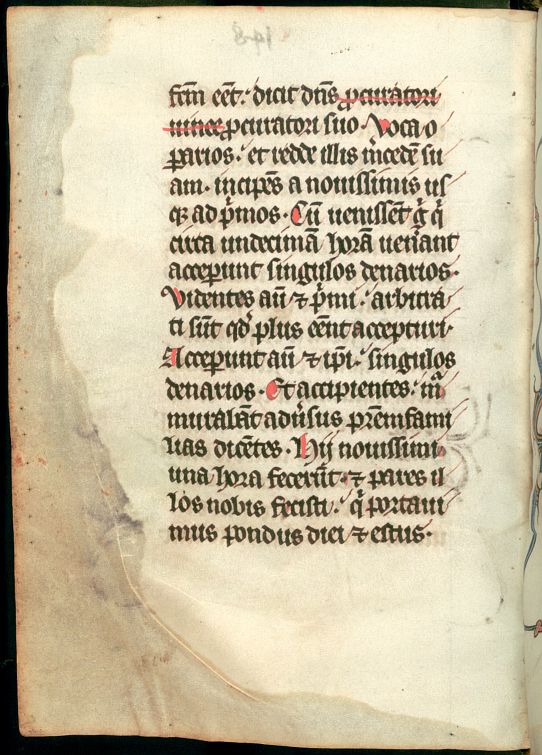 148
fcm̄ eēt. dicit dn̄s ꝓcuratori
uinee ꝓcuratori suo. Voca o
ꝑarios. et redde illis m̄cedē su
am. incipēs a nouissimis us
qꝫ ad p̄mos. Cū uenissēt g̊ q̇
circa undecimā horā uen̄ant
acceꝑunt singulos denarios.
Videntes aū ⁊ p̄mi. arbitra
ti sūt qđ plus cēnt accepturi.
Acceꝑunt aū ⁊ ip̄i. singulos
denarios. Et accipientes. m̄
murabāt adūsus pr̄emfami
lias dicētes. Hij nouissimi
una hora fecerūt. ⁊ pares il
los nobis fecisti. q̇ portaui
mus pondus diei ⁊ estus.